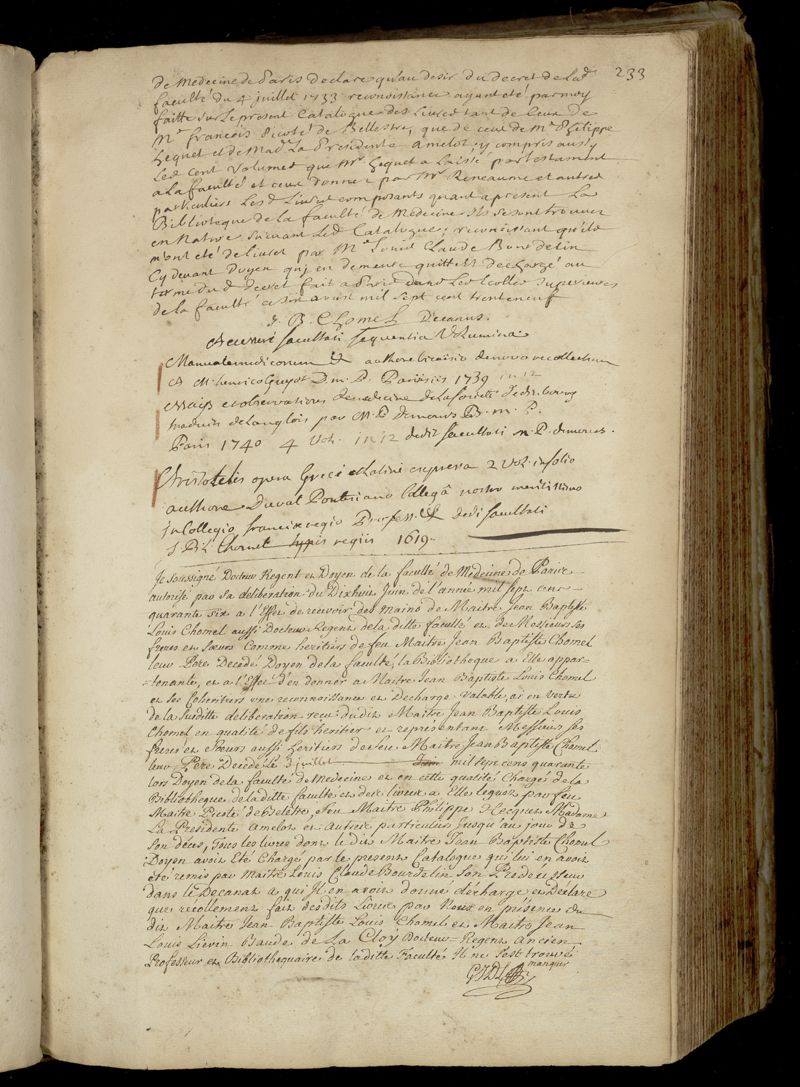 233
de Medecine de Paris declare qu'au desir du decret de lad.
faculté du 4 juillet 1733 reconoissance ayant eté par moy
faitte sur le present Catalogue des Livres tant de Ceux de
Mr François Picoté de Bellestre, que de ceux de Mr Philippe
hequet et de Made La Presidente amelot, y compris aussy
Led. cent volumes que Mr hequet a Laissé par testament
a La faculté et ceux donner par Mr Reneaume et autres
particuliers Lesd. Livres composants quant apresent La
Biblioteque de la faculté de Medecine ils se sont trouver
en Nature suivant Led. Catalogue; reconnoissant qu'ils
m'ont eté de livrer par Me Louis Claude Bourdelin
Cy devant Doyen qui en demeure quitte et dechargé au
terme du d. decret fait a Paris dans Les Ecolles superieures
de la faculté ce août mil sept cent trente neuf
J. B. Chomel Decanus.
facultati sequentia Volumina
Manuale medicorum authore recollectum
a M. henrico Guyot D. m. P. Parisiis 1739 in 12
essais et observations de medecine de la societé d'edimbourg
traduits de l'anglois par M. P. Demours D. m. P.
Paris 1740 4 Vol. in 12 dedit facultati M. P. demours.
Aristotelis opera Grecé et Latiné expressa 2 Vol. infolio
authore Duval Pontesiano Collegâ nostro meritissimo
in Collegio franciæ regio Professore dedi facultati
J. B. Chomel typis regiis 1619.
Je soussigné Docteur Regent et Doyen de la faculté de Medecine de Paris
autorisé par sa deliberation du Dixhuit Juin de l'année mil sept cens
quarante six a l'Effet de recevoir des mains de Maitre Jean Baptiste
Louis Chomel aussi Docteur Regent de la ditte faculté et de Messieurs ses
freres et Sœurs Comme heritiers de feu Maitre Jean Baptiste Chomel
leur Pere Decedé Doyen de la faculté, la Bibliotheque a Elle appar-
-tenante, et a l'Effet d'en donner a Maitre Jean Baptiste Louis Chomel
et ses Coheritiers une reconnoissance et Decharge valable, ai en vertu
de la susditte deliberation reçu dudit Maitre Jean Baptiste Louis
Chomel en qualité de fils heritier et representant Messieurs ses
freres et Sœurs aussi heritiers de feu Maitre Jean Baptiste Chomel
leur Pere Decedé Le 3 juillet mil sept cens quarante
lors Doyen de la faculté de Medecine et en cette qualité Chargé de la
Bibliotheque de la ditte faculté et des livres a Elle leguez par feu
Maitre Picoté de Belêtre, feu Maitre Philippe Hecquet Madame
La Presidente Amelot et Autres particuliers jusqu'au jour de
son décès, tous les livres dont le dit Maitre Jean Baptiste Chomel
Doyen avoit Eté Chargé par le present Catalogue qui lui en avoit
été remis par Maitre Louis Claude Bourdelin son Predecesseur
dans le Decanat a qui Il en avoit donné décharge et Declare
que recollement fait desdits Livres par Nous en présence du
dit Maitre Jean Baptiste Louis Chomel et Maitre Jean
Louis Lievin Baude de La Cloÿ Docteur-Regent Ancien
Professeur et Bibliothequaire de la ditte Faculté Il ne s'est trouvé
manquer